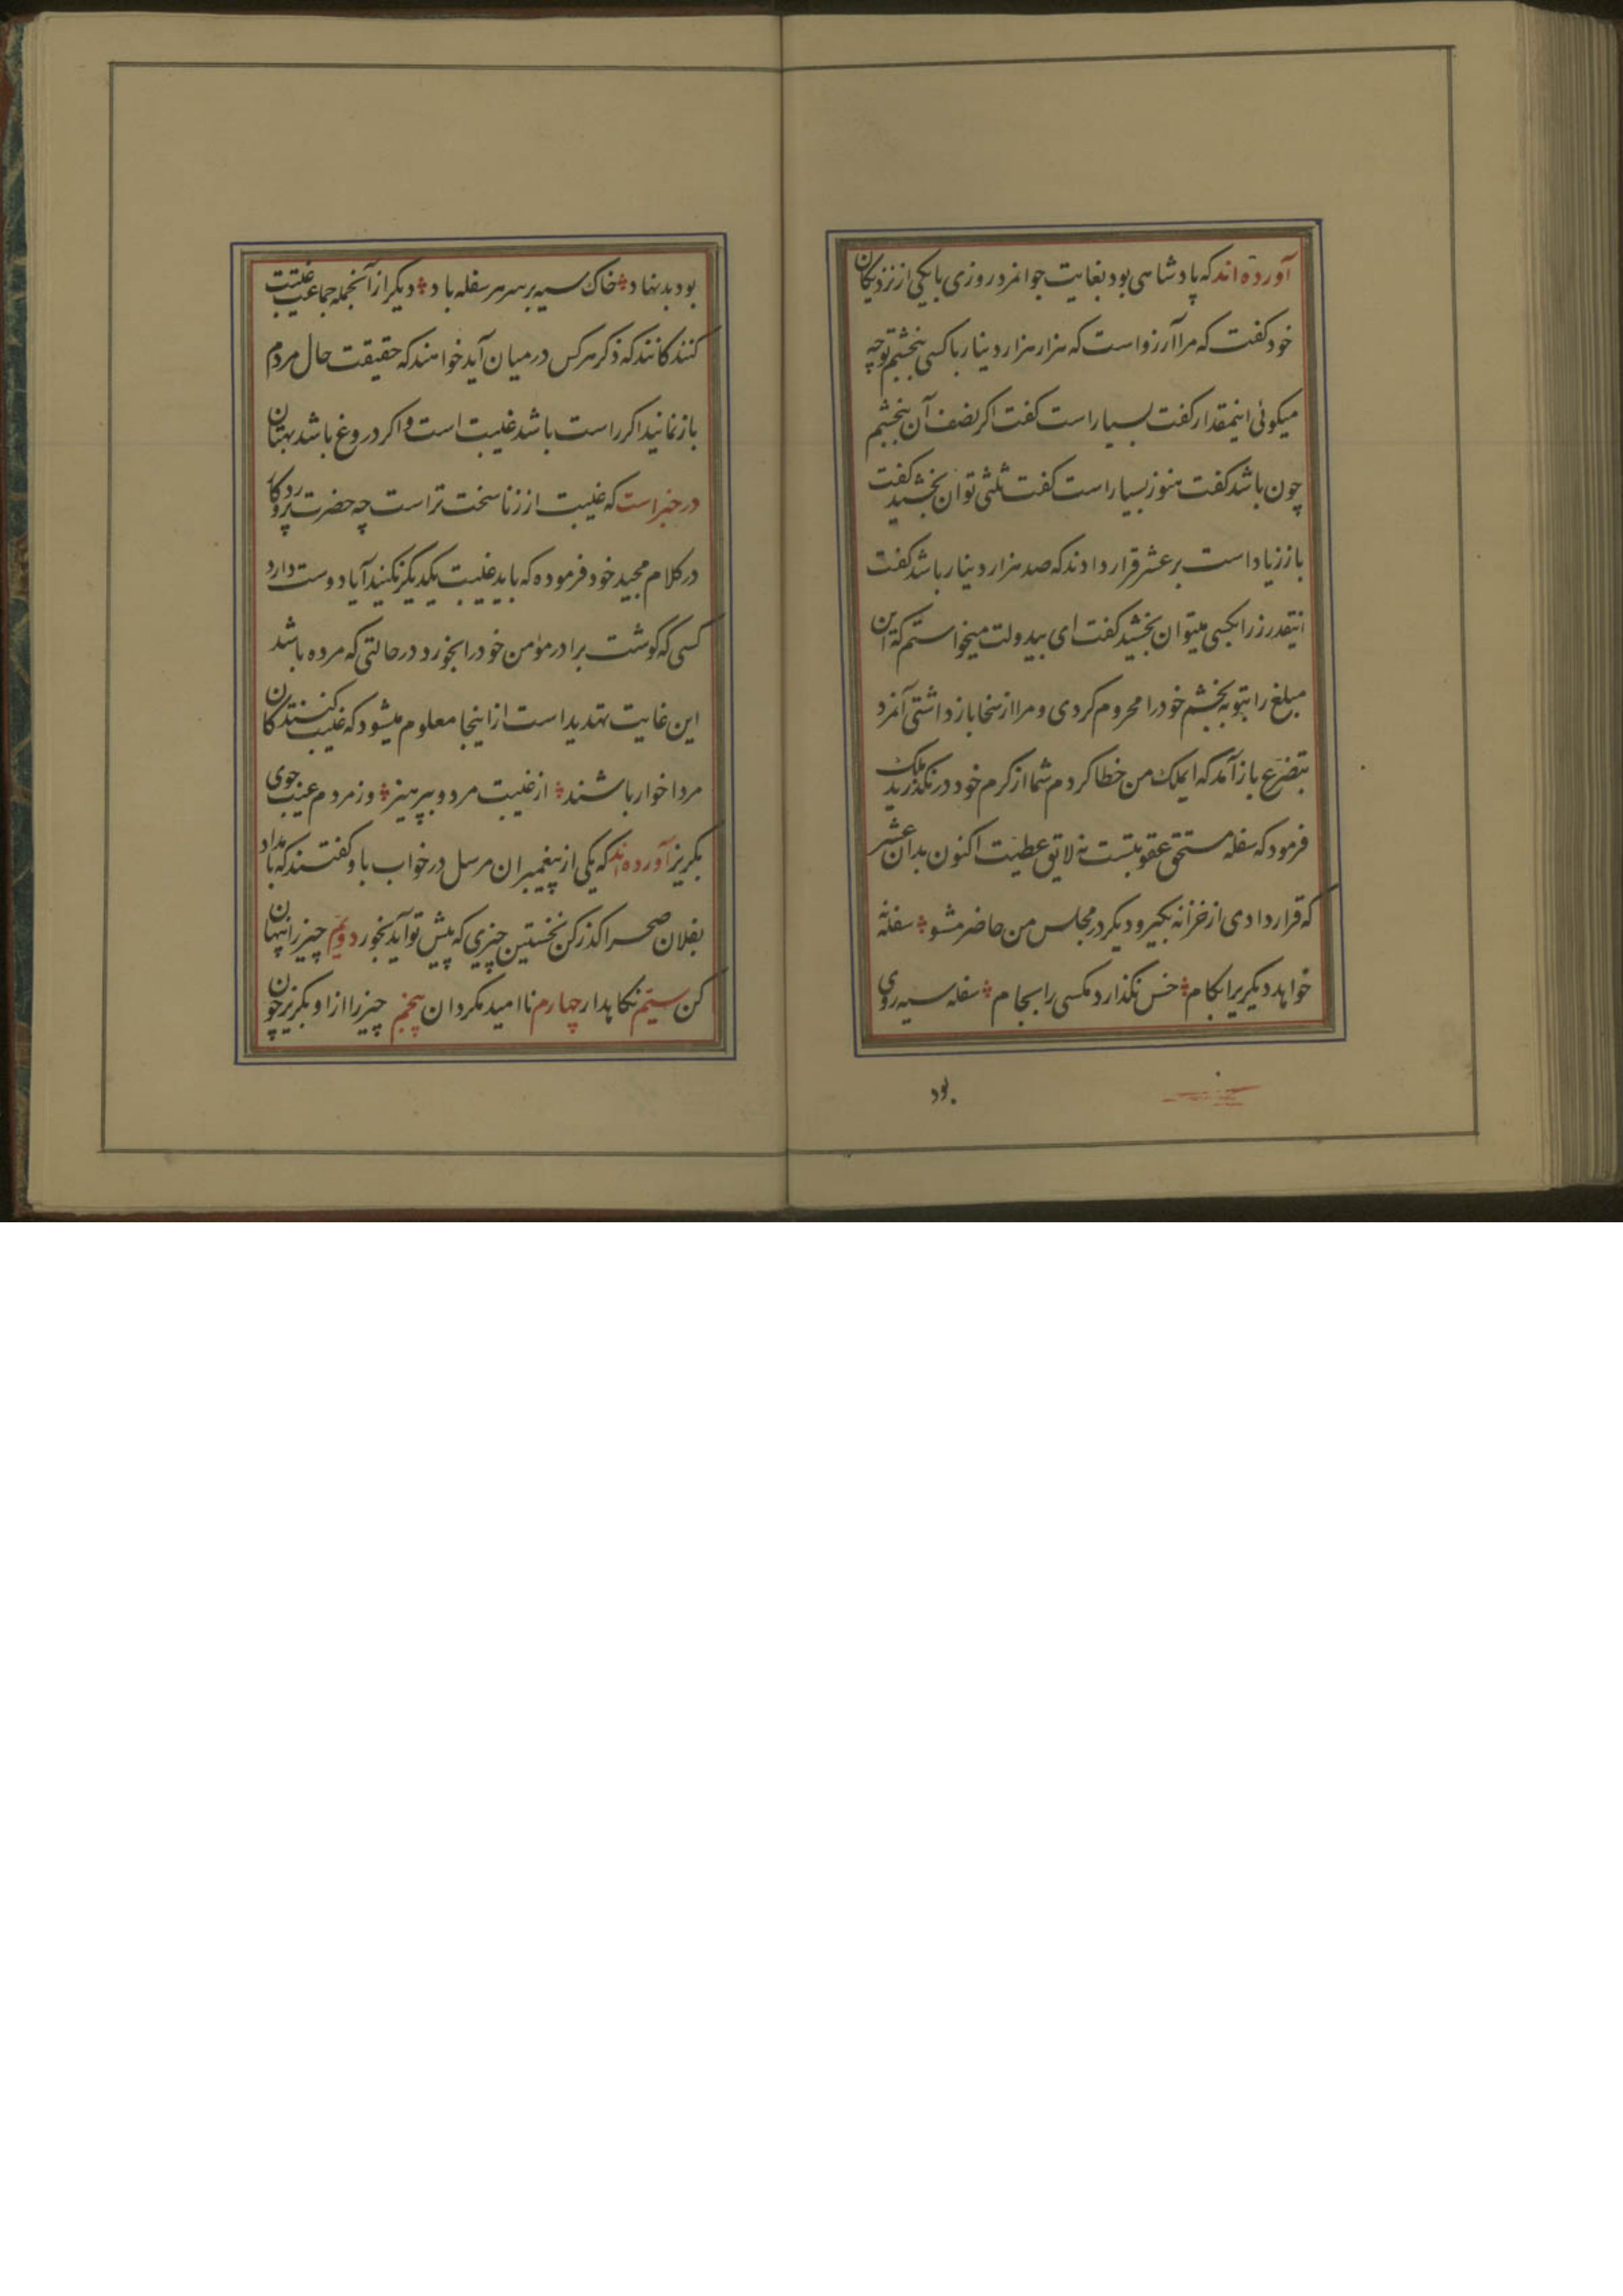 آورده‌اند که پادشاهی بود بغایت جوانمرد روزی با یکی از نزدیکان
خود کفت که مرا آرزو است که هزار هزار دینار با کسی بخشم تو چه
میکوئی اینمقدار کفت بسیار است کفت اکر نصف آن بخشم
چون باشد کفت هنوز بسیار است کفت ثلثی توان بخشید کفت
باز زیاد است بر عشر قرار دادند که صد هزار دینار باشد کفت
اینقدر زر بکسی میتوان بخشید کفت ای بیدولت میخواستم که این
مبلغ را بتو به بخشم خود را محروم کردی و مرا از سخا باز داشتی آنمرد
بتضرع باز آمد که ایملک من خطا کردم شما از کرم خود در نکذرید ملک
فرمود که سفله مستحق عقوبتست نه لایق عطیت اکنون بدان عشر
که قرار دادی از خزانه بکیر و دیکر در مجلس من حاضر مشو سفله نه
خواهد دیکریرا بکام خس نکذارد مکسی را بجام سفله سیه روی
بود
بود بد نهاد خاک سیه بر سر هر سفله باد دیکر از آنجمله جماعت غیبت
کنندکانند که ذکر هر کس در میان آید خواهند که حقیقت حال مردم
باز نمایند اکر راست باشد غیبت است و اکر دروغ باشد بهتان
در خبر است که غیبت از زنا سخت تر است چه حضرت پروردکار
در کلام مجید خود فرموده که باید غیبت یکدیکر نکنید آیا دوست دارد
کسی که کوشت برادر مؤمن خود را بخورد در حالتی که مرده باشد
این غایت تهدید است از اینجا معلوم میشود که غیبت کنندکان
مردا خوار باشند از غیبت مرد و بپرهیز وز مردم عیب جوی
بکریز آورده‌اند که یکی از پیغمبران مرسل در خواب باو کفتند که بامداد
بفلان صحرا کذر کن نخستین چیزی که پیش تو آید بخور دویم چیز را پنهان
کن سیّم نکاهدار چهارم ناامید مکردان پنجم چیز را از او بکریز چون